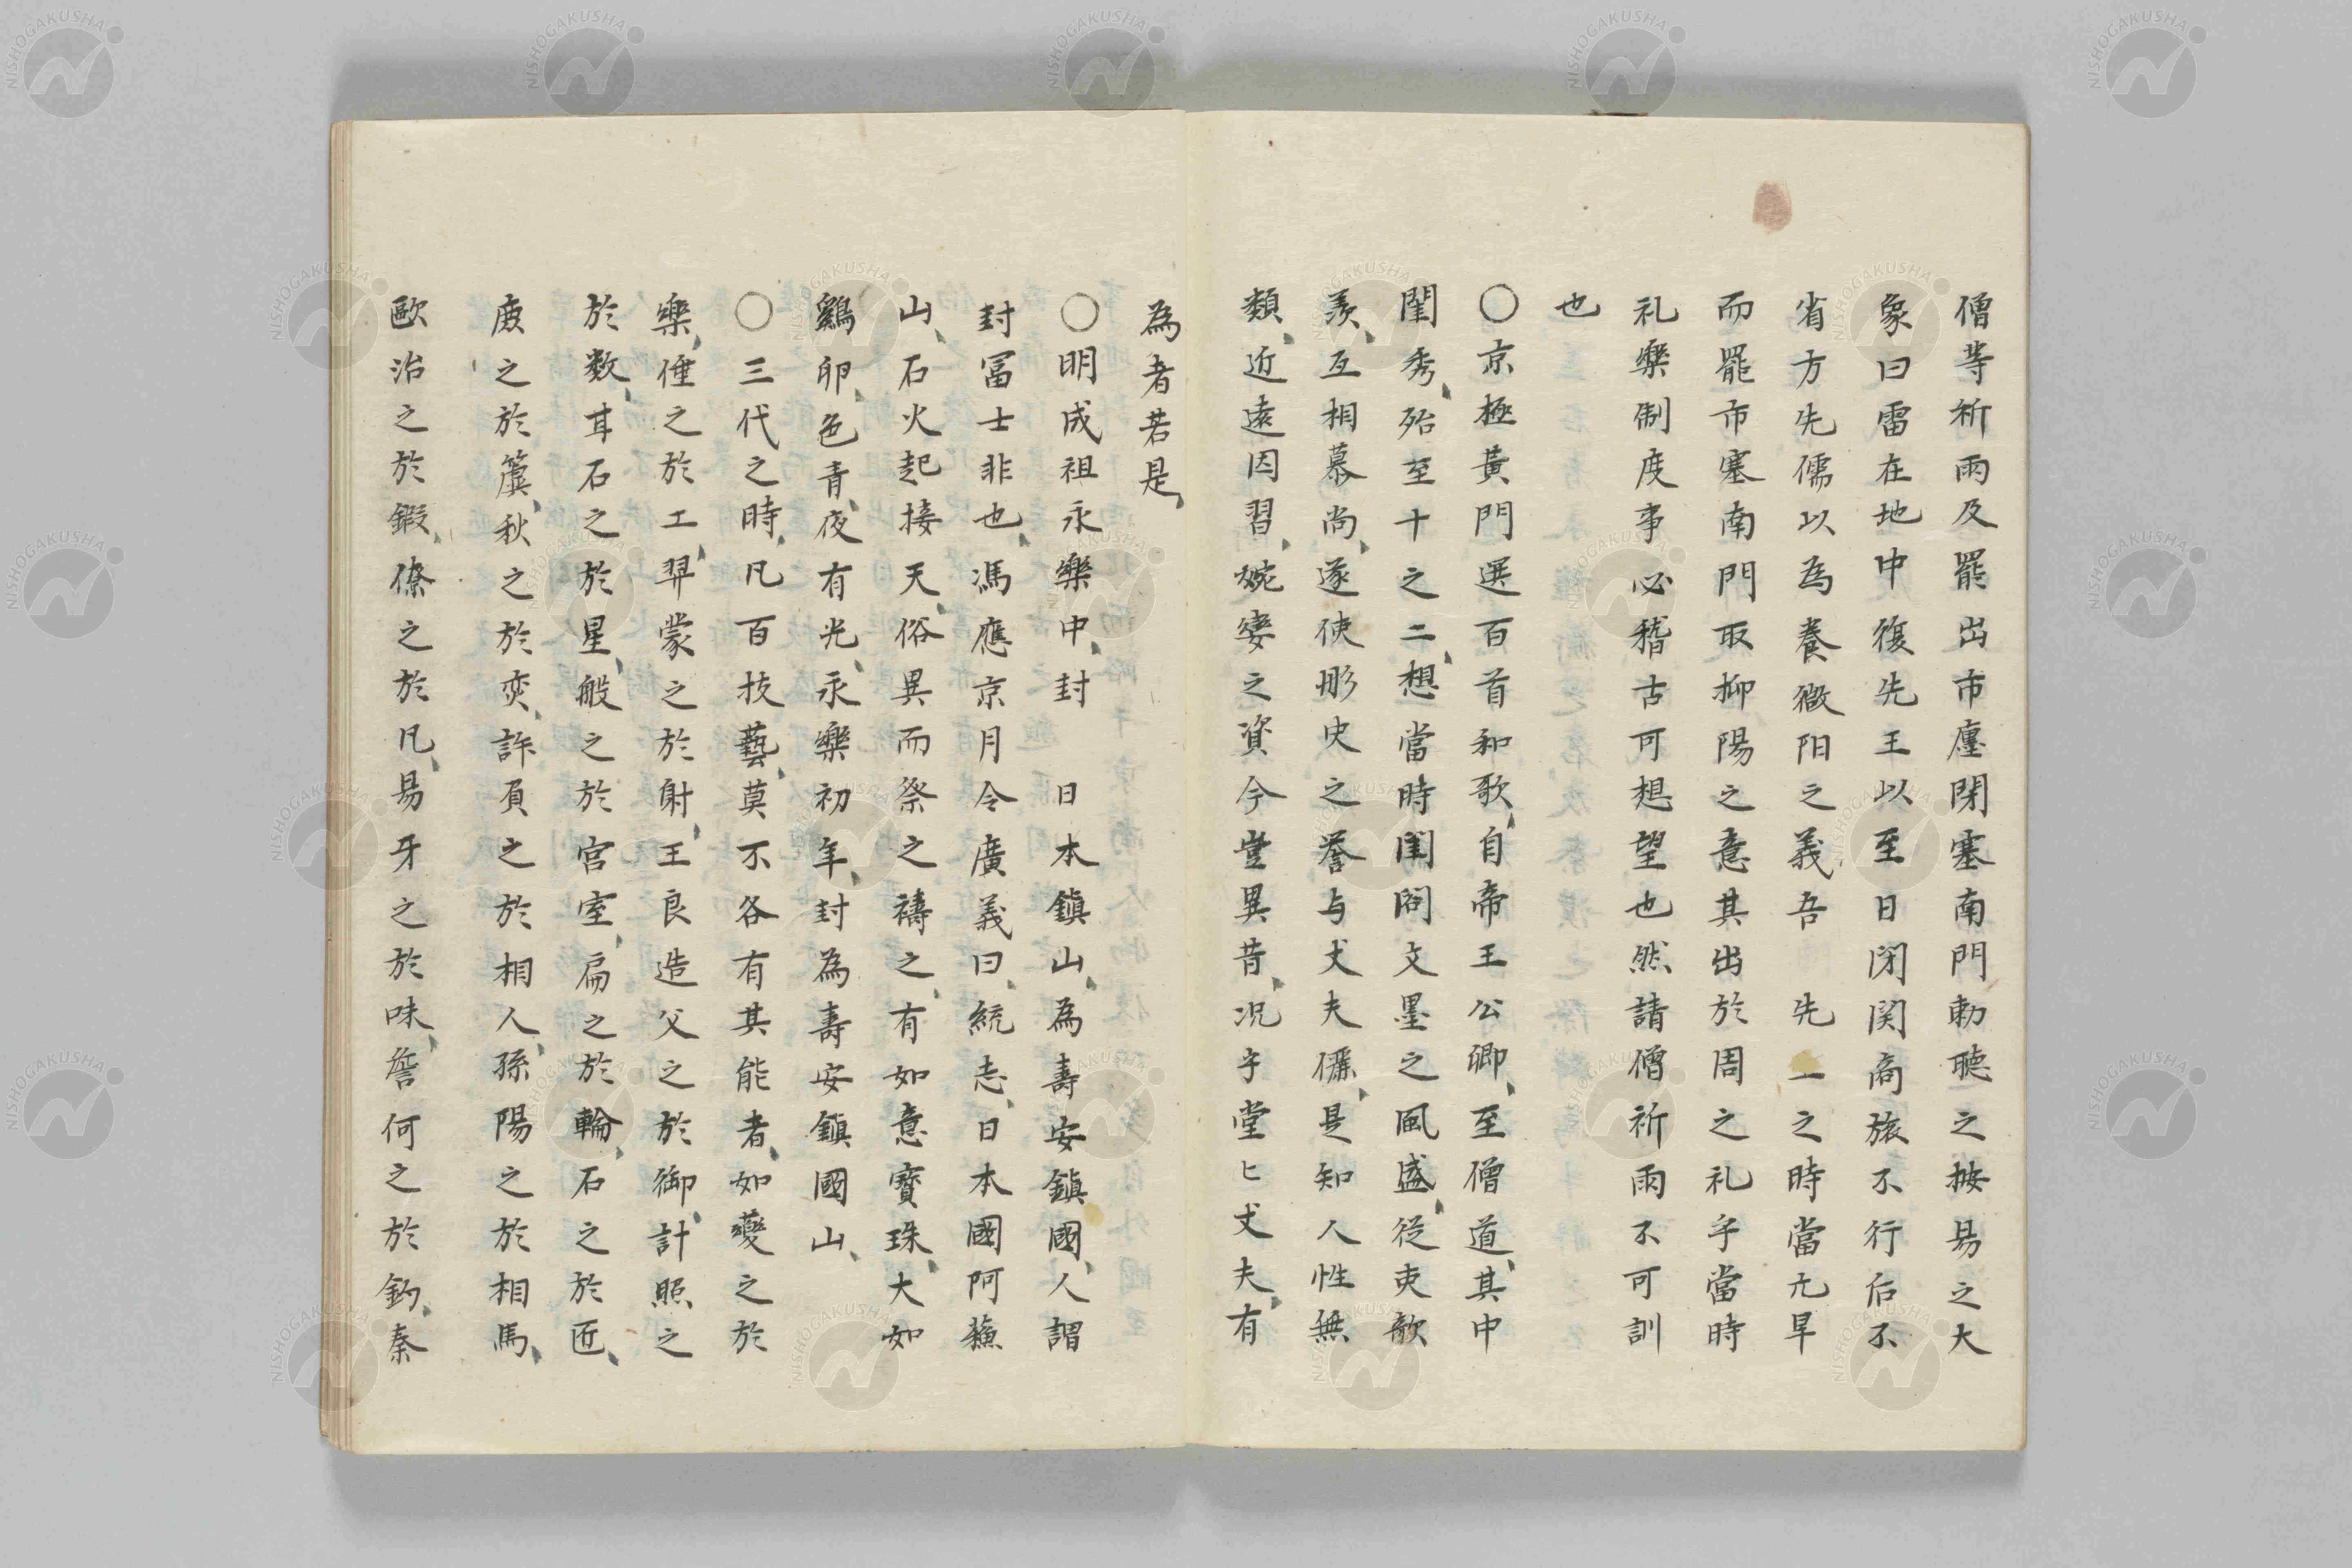 僧等祈雨及罷出市廛閉塞南門勅聴之按易之大
象曰雷在地中復先王以至日閉関商旅不行后不
省方先儒以為養微阳之義吾　先　之時當亢旱
而罷市塞南門取抑陽之意其出於周之礼乎當時
礼樂制度事必稽古可想望也然請僧祈雨不可訓
也
○京極黄門選百首和歌、自帝王公卿、至僧道、其中
閨秀、殆至十之二、想當時閨閤文墨之風盛、従吏歆
羨、互相慕尚、遂使彤史之誉与丈夫儷、是知人性無
類、近遠因習、婉孌之資今豈異昔、况乎堂ヒ丈夫、有
為者若是、
○明成祖永樂中、封　日本鎮山、為壽安鎮國、人謂
封冨士非也、馮應京月令廣義曰、統志、日本國阿蘇
山、石火起接天、俗異而祭之禱之、有如意寳珠、大如
鷄卵、色青、夜有光、永樂初年、封為壽安鎮國山、
○三代之時、凡百技藝、莫不各有其能者、如夔之於
樂、倕之於工、羿蒙之於射、王良造父之於御、計照之
於数、甘石之於星、般之於宮室、扁之於輪、石之於匠、
慶之於簴、秋之於奕、許負之於相人、孫陽之於相馬、
歐治之於鍜、僚之於凡、易牙之於味、詹何之於釣、秦
NISHOGAKUSHA